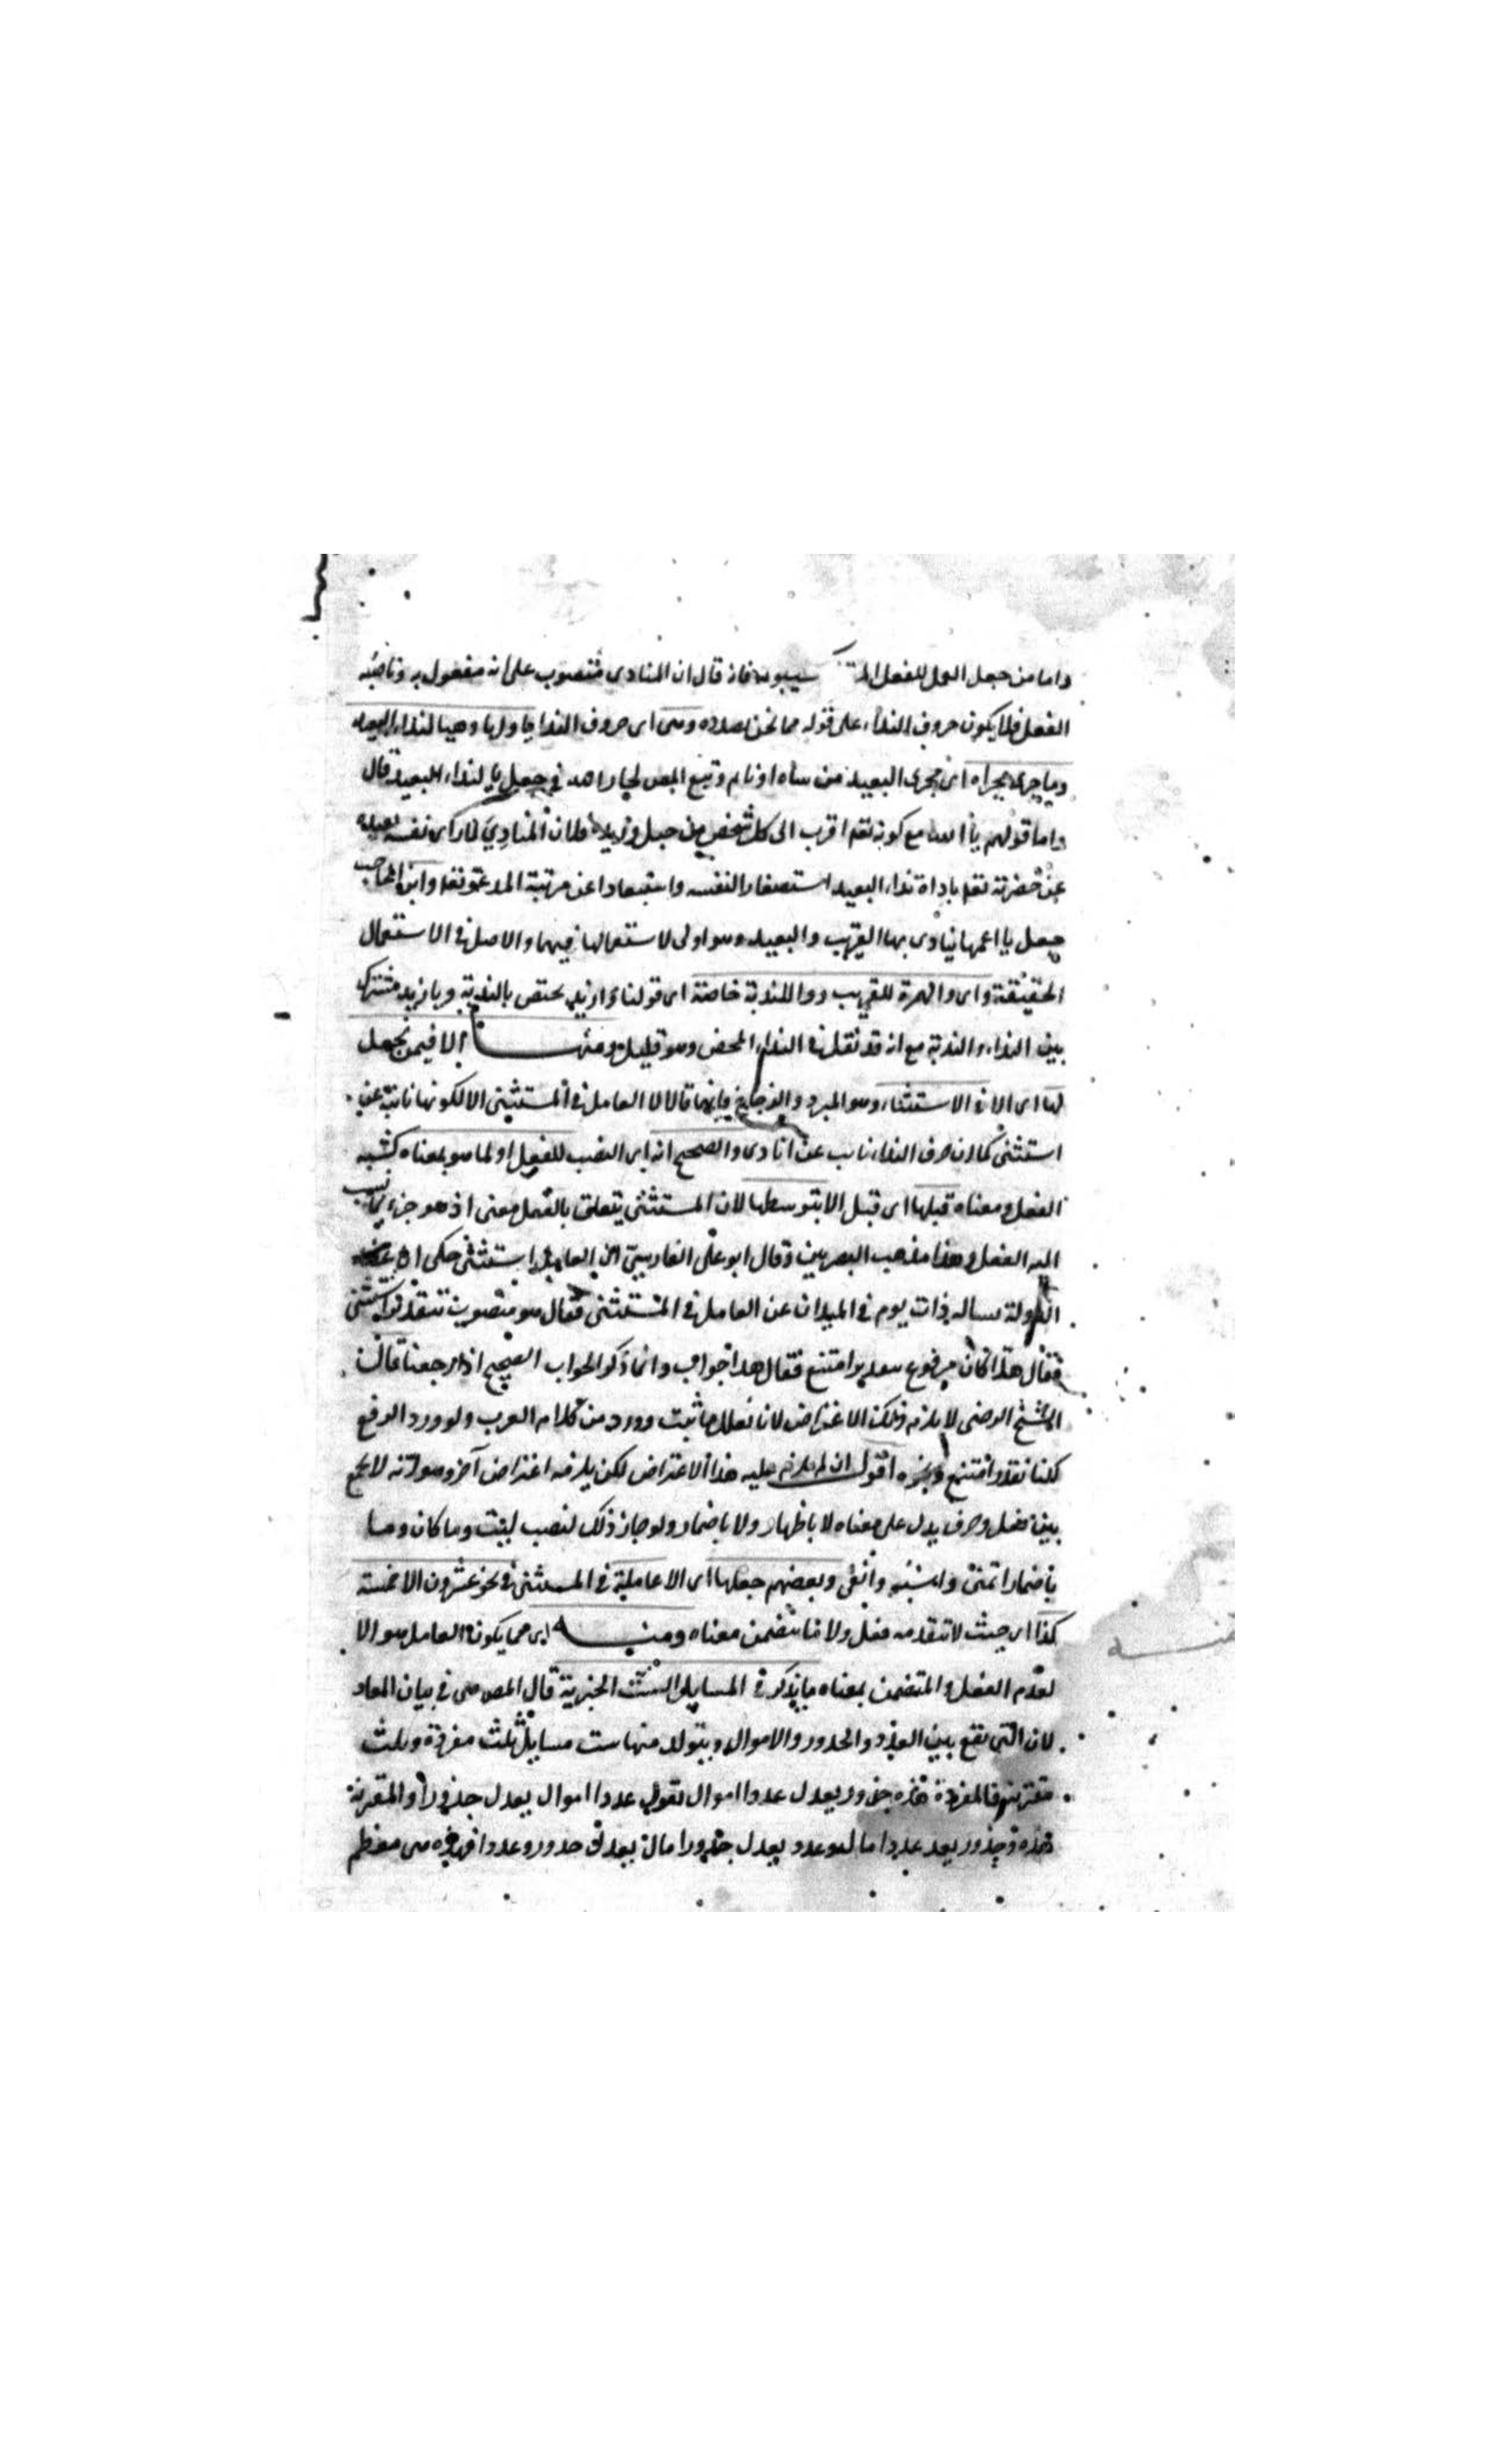 واما من جعل العمل للفعل سيبويه فانه قال ان المنادى منصوب على انه مفعول به وناصبه
الفعل فلا يكون حروف النداء على قوله مما نحن بصدده وهى اى حروف النداء يا ولها وهيا لنداء البعيد
وما جرى مجراه اى مجرى البعيد من ساه او نايم وتبع المص لجار الله فى جعل يا لنداء البعيد قال
واما قولهم يا الله مع كونه تعه اقرب الى كل شخص من حبل وريده فلان المنادى لما راى نفسه بعيدة
عن حضرته تعه باداة نداء البعيد استصغارا لنفسه واستبعادا عن مرتبة المدعو تعه وابن الحاجب
جعل يا اعمها ينادى بها القريب والبعيد وهو اولى لاستعمالها فيهما والاصل فى الاستعمال
الحقيقة واى والهمزة للقريب ووا للندبة خاصة اى قولنا وازيد يختص بالندبة ويا زيد مشترك
بين النداء والندبة مع انه قد نقل فى النداء المحض وهو قليل ومنها الا فيمن يجعل
لها اى الا فى الاستثناء وهو المبرد والزجاج فانهما قالا لا العامل فى المستثنى الا لكونها نائبة عن
استثنى كما ان حرف النداء نايب عن انادى والصحيح انه اى النصب للفعل او لما هو بمعناه كشبه
الفعل ومعناه قبلها اى قبل الا بتوسطها لان المستثنى يتعلق بالفعل معنى اذ هو جزء مما نسب
اليه الفعل وهذا مذهب البصريين وقال ابو على الفارسى ان العامل استثنى حكى ان عضد
الدولة ساله ذات يوم فى الميدان عن العامل فى المستثنى فقال هو منصوب بتقدير استثنى
فقال هلا كان مرفوع بتقدير امتنع فقال هذا جواب وانما ذكر الجواب الصحيح اذا رجعنا قال
الشيخ الرضى لا يلزمه ذلك الاعتراض لانا نعلل ما ثبت وورد من كلام العرب ولو ورد الرفع
كنا نقدر امتنع ونحوه اقول ان لم يلزم عليه هذا الاعتراض لكن يلزمه اعتراض آخر وهو انه لا يجمع
بين فعل وحرف يدل على معناه لا باظهار ولا باضمار ولو جاز ذلك لنصب ليت وما كان وما
باضمار اتمنى واشبه وانفى وبعضهم جعلها اى الا عاملة فى المستثنى فى نحو عشرون الا خمسة
كذا اى حيث لا تتقدمه فعل ولا ما تتضمن معناه ومنه اى مما يكون العامل هو الا
لعدم الفعل والمتضمن بمعناه ما يذكر فى المسايل الست الجبرية قال المص فى بيان المعاد
لان التى يقع بين العدد والجذور والاموال ويتولد منها ست مسايل ثلث مفردة وثلث
مقترنة فالمفردة هذه جذور يعدل عددا اموال تعدل عددا اموال يعدل جذورا والمقترنة
هذه وجذور يعدل عددا مال وعدد يعدل جذورا مال يعدل جذور وعددا فهذه هى معظم